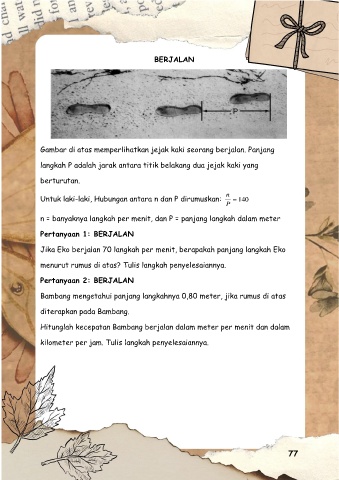 BERJALAN
P
Gambar di atas memperlihatkan jejak kaki seorang berjalan. Panjang
langkah P adalah jarak antara titik belakang dua jejak kaki yang
berturutan.
Untuk laki-laki, Hubungan antara n dan P dirumuskan: n/P = 140
n = banyaknya langkah per menit, dan P = panjang langkah dalam meter
Pertanyaan 1: BERJALAN
Jika Eko berjalan 70 langkah per menit, berapakah panjang langkah Eko
menurut rumus di atas? Tulis langkah penyelesaiannya.
Pertanyaan 2: BERJALAN
Bambang mengetahui panjang langkahnya 0,80 meter, jika rumus di atas
diterapkan pada Bambang.
Hitunglah kecepatan Bambang berjalan dalam meter per menit dan dalam
kilometer per jam. Tulis langkah penyelesaiannya.
77